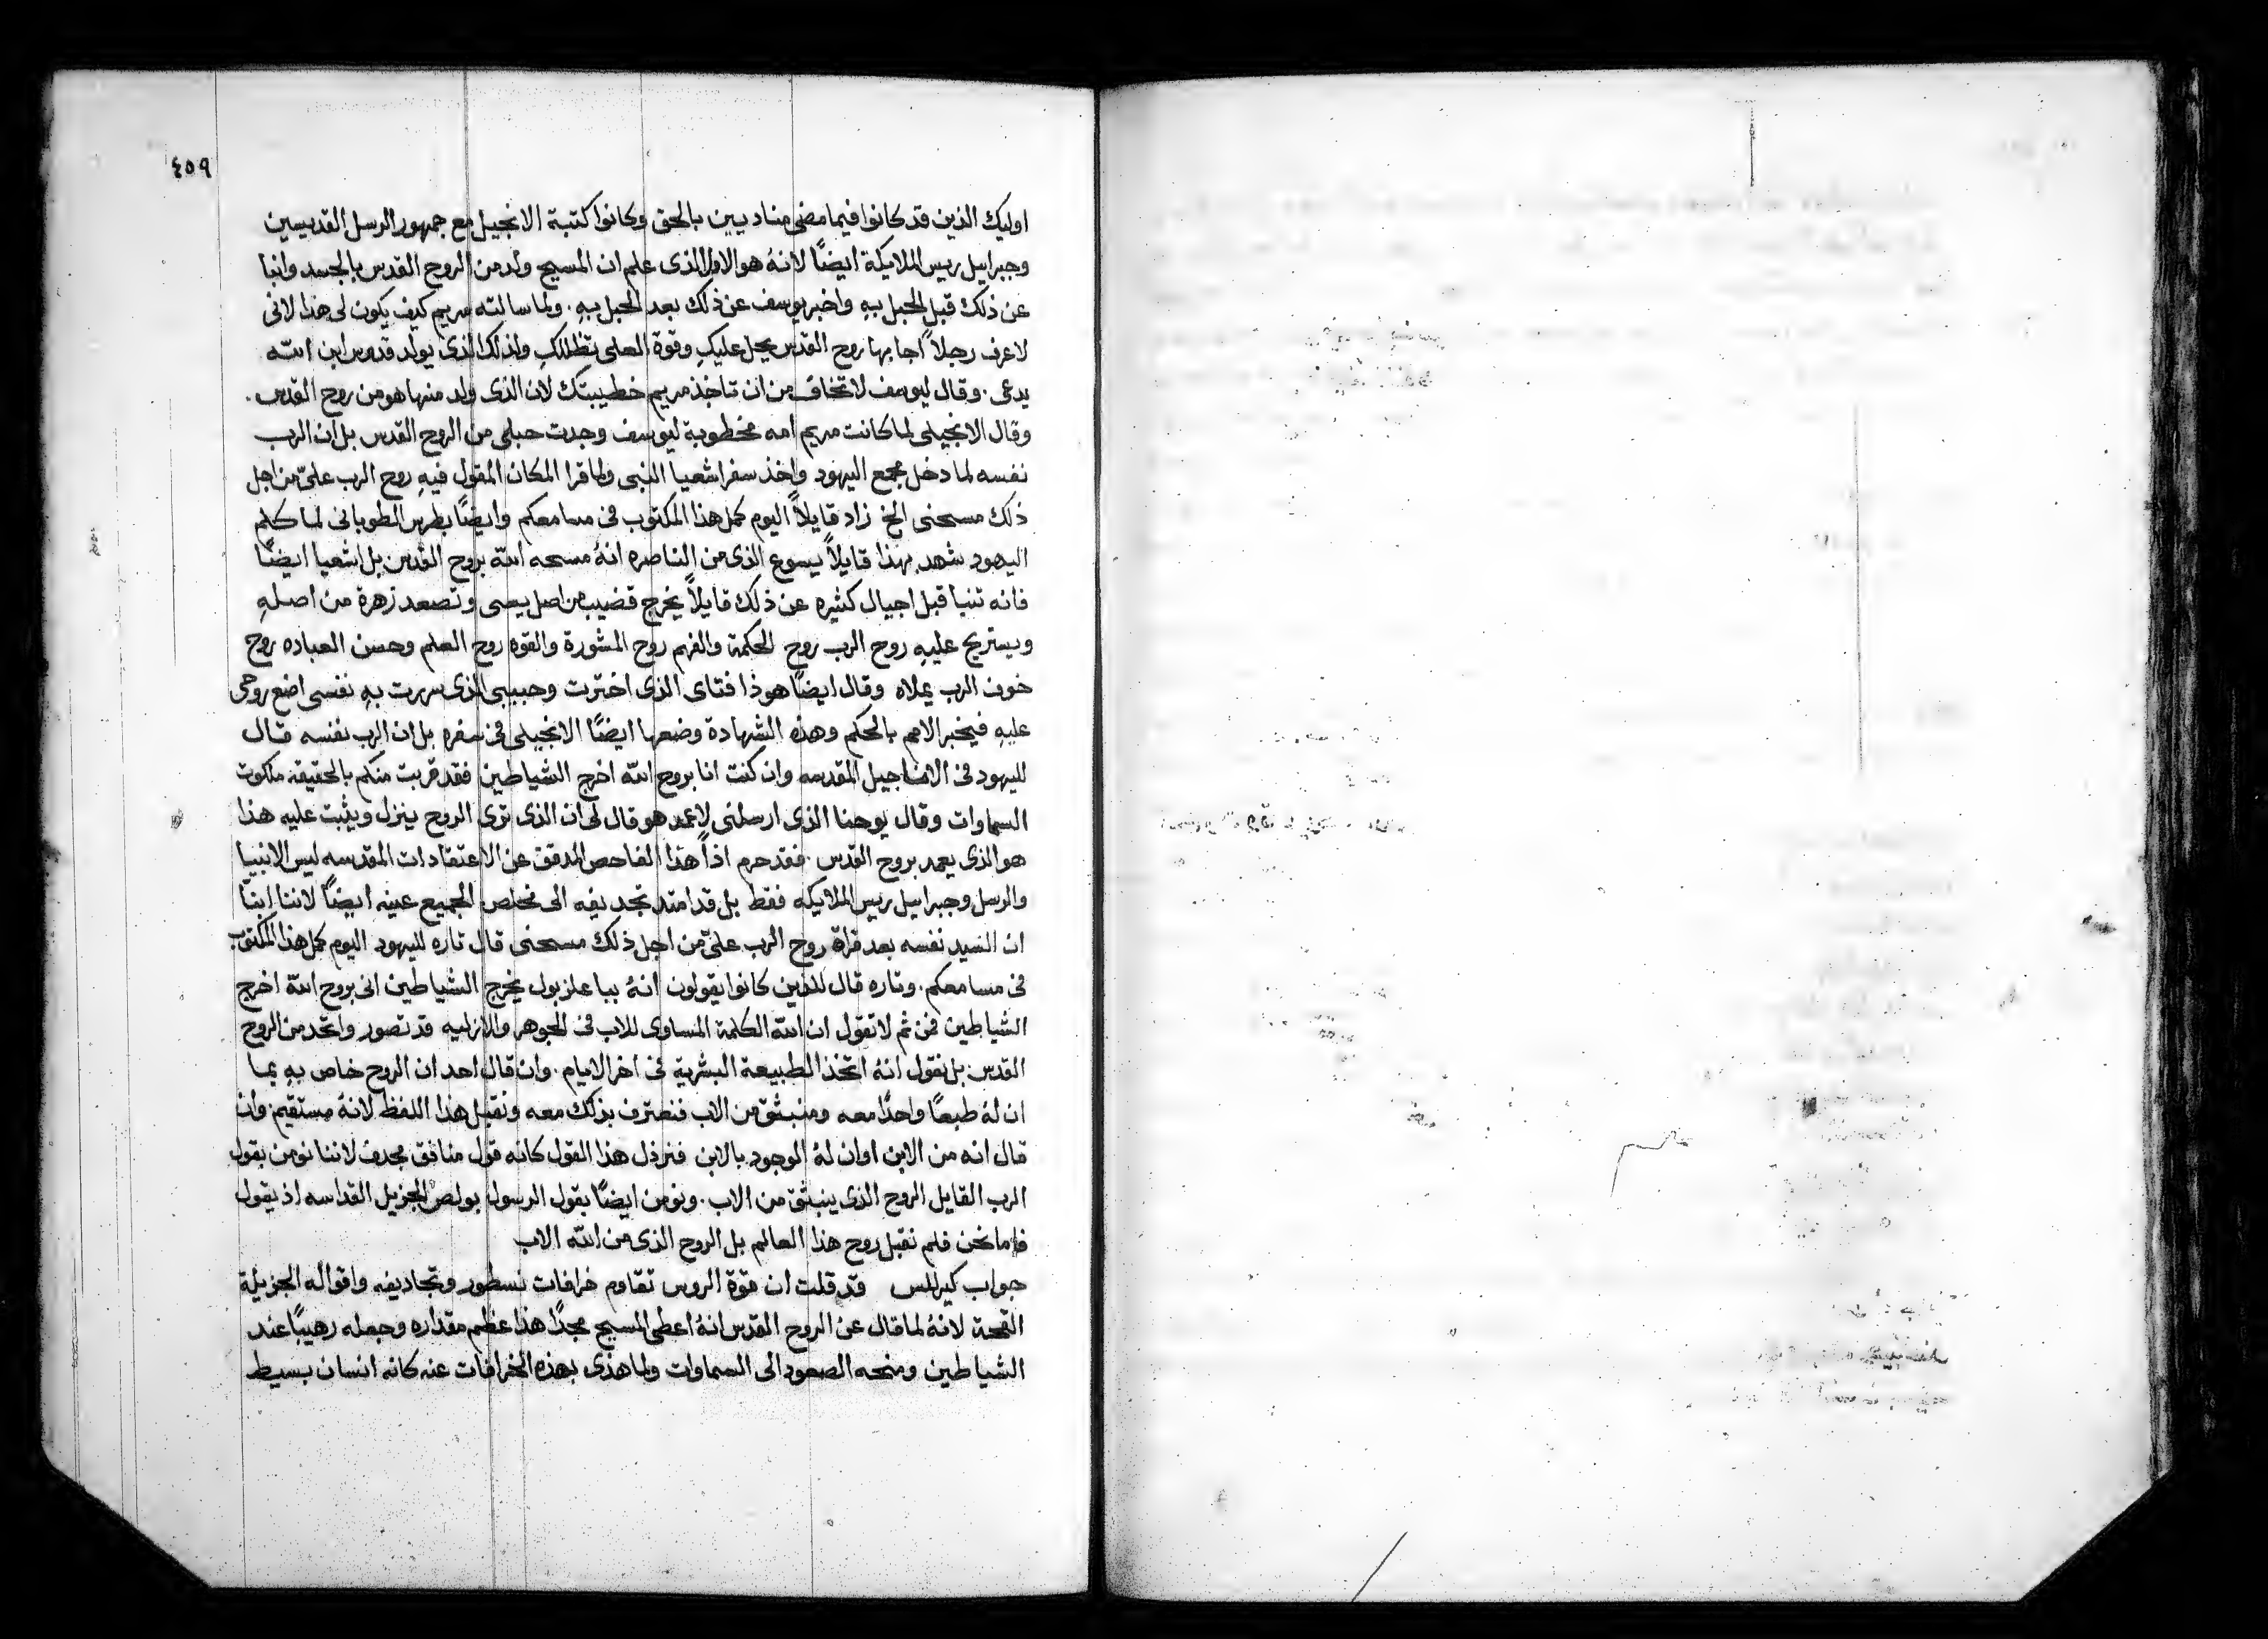 ٤٥٩
اوليك الذين قد كانوا فيما مضى مناديين بالحق وكانوا كتبة الانجيل مع جمهور الرسل القديسين
وجبراييل رييس الملايكة ايضًا لانهُ هو الاول الذى علم ان المسيح ولد من الروح القدس بالجسد وانبا
عن ذلك قبل الحبل بهِ واخبر يوسف عن ذلك بعد الحبل بهِ . ولما سالته مريم كيف يكون لى هذا لانى
لا عرف رجلاً اجابها روح القدس يحل عليكِ وقوة العلى تظللكِ ولذلك الذى يولد قدوس ابن الله
يدعى . وقال ليوسف لا تخاف من ان تاخذ مريم خطيبتك لان الذى ولد منها هو من روح القدس .
وقال الانجيلى لما كانت مريم امه مخطوبة ليوسف وجدت حبلى من الروح القدس بل ان الرب
نفسه لما دخل مجمع اليهود واخذ سفر اشعيا النبى ولما قرا المكان المقول فيهِ روح الرب علىّ من اجل
ذلك مسحنى الخ زاد قايلاً اليوم كمل هذا المكتوب فى مسامعكم وايضًا بطرس الطوبانى لما كلم
اليهود شهد بهذا قايلاً يسوع الذى من الناصره انهُ مسحه الله بروح القدس بل اشعيا ايضًا
فانه تنبا قبل اجيال كثيره عن ذلك قايلاً يخرج قضيب من اصل يسى وتصعد زهرة من اصلهِ
ويستريح عليهِ روح الرب روح الحكمة والفهم روح المشورة والقوه روح العلم وحسن العباده روح
خوف الرب يملاه وقال ايضًا هوذا فتاى الذى اخترت وحبيبى الذى سررت بهِ نفسى اضع روحى
عليهِ فيخبر الامم بالحكم وهذه الشهادة وضعها ايضًا الانجيلى فى سفره بل ان الرب نفسه قال
لليهود فى الاناجيل المقدسه وان كنت انا بروح الله اخرج الشياطين فقد قربت منكم بالحقيقه ملكوت
السماوات وقال يوحنا الذى ارسلنى لاعمد هو قال لى ان الذى ترى الروح ينزل ويثبت عليه هذا
هو الذى يعمد بروح القدس . فقد حرم اذاً هذا الفاحص المدقق عن الاعتقادات المقدسه ليس الانبيا
والرسل وجبراييل رييس الملايكه فقط بل قد امتد تجديفه الى مخلص الجميع عينه ايضًا لاننا ابنّا
ان السيد نفسه بعد قراة روح الرب علىّ من اجل ذلك مسحنى قال تاره لليهود اليوم كمل هذا المكتوب
فى مسامعكم . وتاره قال للذين كانوا يقولون انهُ بباعلزبول يخرج الشياطين انى بروح الله اخرج
الشياطين فمن ثم لا تقول ان الله الكلمة المساوى للاب فى الجوهر والازليه قد تصور واتحد من الروح
القدس بل نقول انهُ اتخذ الطبيعة البشرية فى اخر الايام . وان قال احد ان الروح خاص بهِ بما
ان لهُ طبعًا واحدًا معه ومنبثق من الاب فنعترف بذلك معه ونقبل هذا اللفظ لانهُ مستقيم وان
قال انه من الابن او ان لهُ الوجود بالابن فنرذل هذا القول كانه قول منافق مجدف لاننا نومن بقول
الرب القايل الروح الذى ينبثق من الاب . ونومن ايضًا بقول الرسول بولص الجزيل القداسه اذ يقول
فاما نحن فلم نقبل روح هذا العالم بل الروح الذى من الله الاب
جواب كيرللس قد قلت ان قوة الروس تقاوم خرافات نسطور وتجاديفه واقواله الجزيلة
القحة لانهُ لما قال عن الروح القدس انهُ اعطى المسيح مجدًا هذا عظم مقداره وجعله رهيبًا عند
الشياطين ومنحه الصعود الى السماوات ولما هذى بهذه الخرافات عنه كانه انسان بسيط